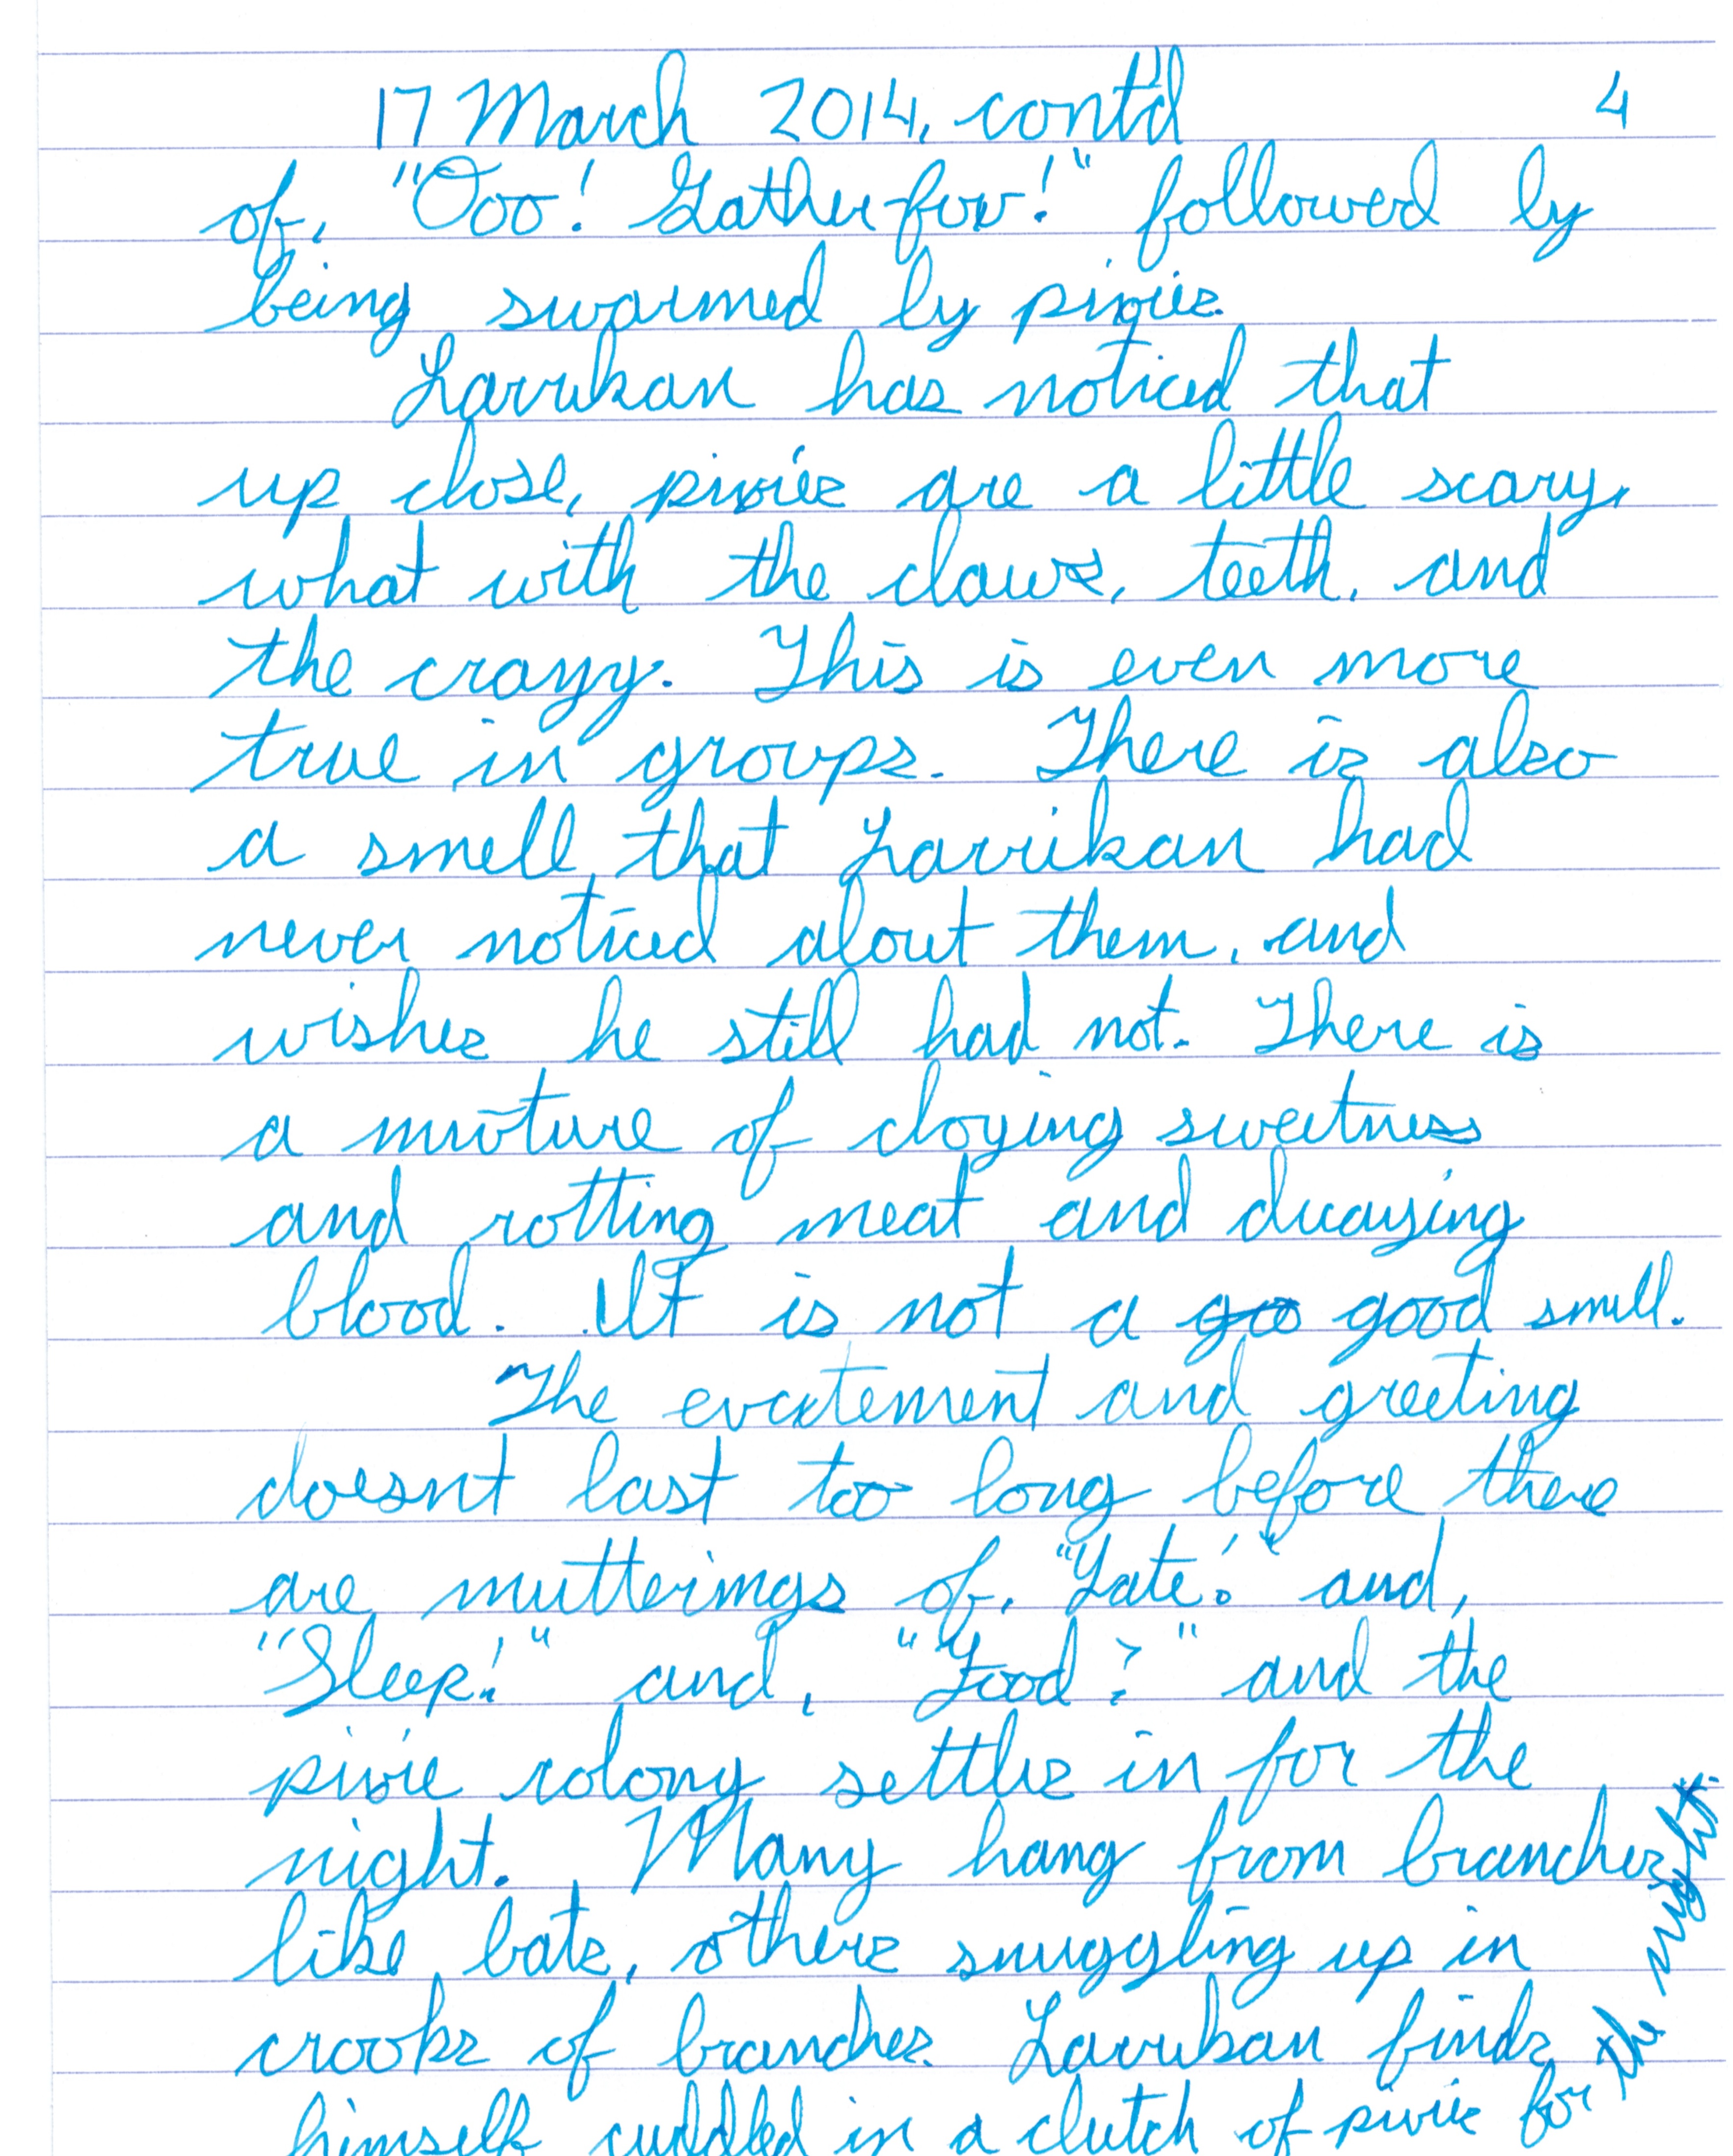 17 March 2014, cont'd 4
of, "Ooo! Gatherfov!" followed by
being swarmed by pixies.
Larrikan has noticed that
up close, pixies are a little scary,
what with the claws, teeth, and
the crazy. This is even more
true in groups. There is also
a smell that Larrikan had
never noticed about them, and
wishes he still had not. There is
a mixture of cloying sweetness
and rotting meat and decaying
blood. It is not a goo good smell.
The excitement and greeting
doesn't last too long before there
are mutterings of, "Late!" and,
"Sleep!" and, "Food?" and the
pixie colony settles in for the
night. Many hang from branches
like bats, others snuggling up in
crooks of branches. Larrikan finds
himself cuddled in a clutch of pixies for
the night.